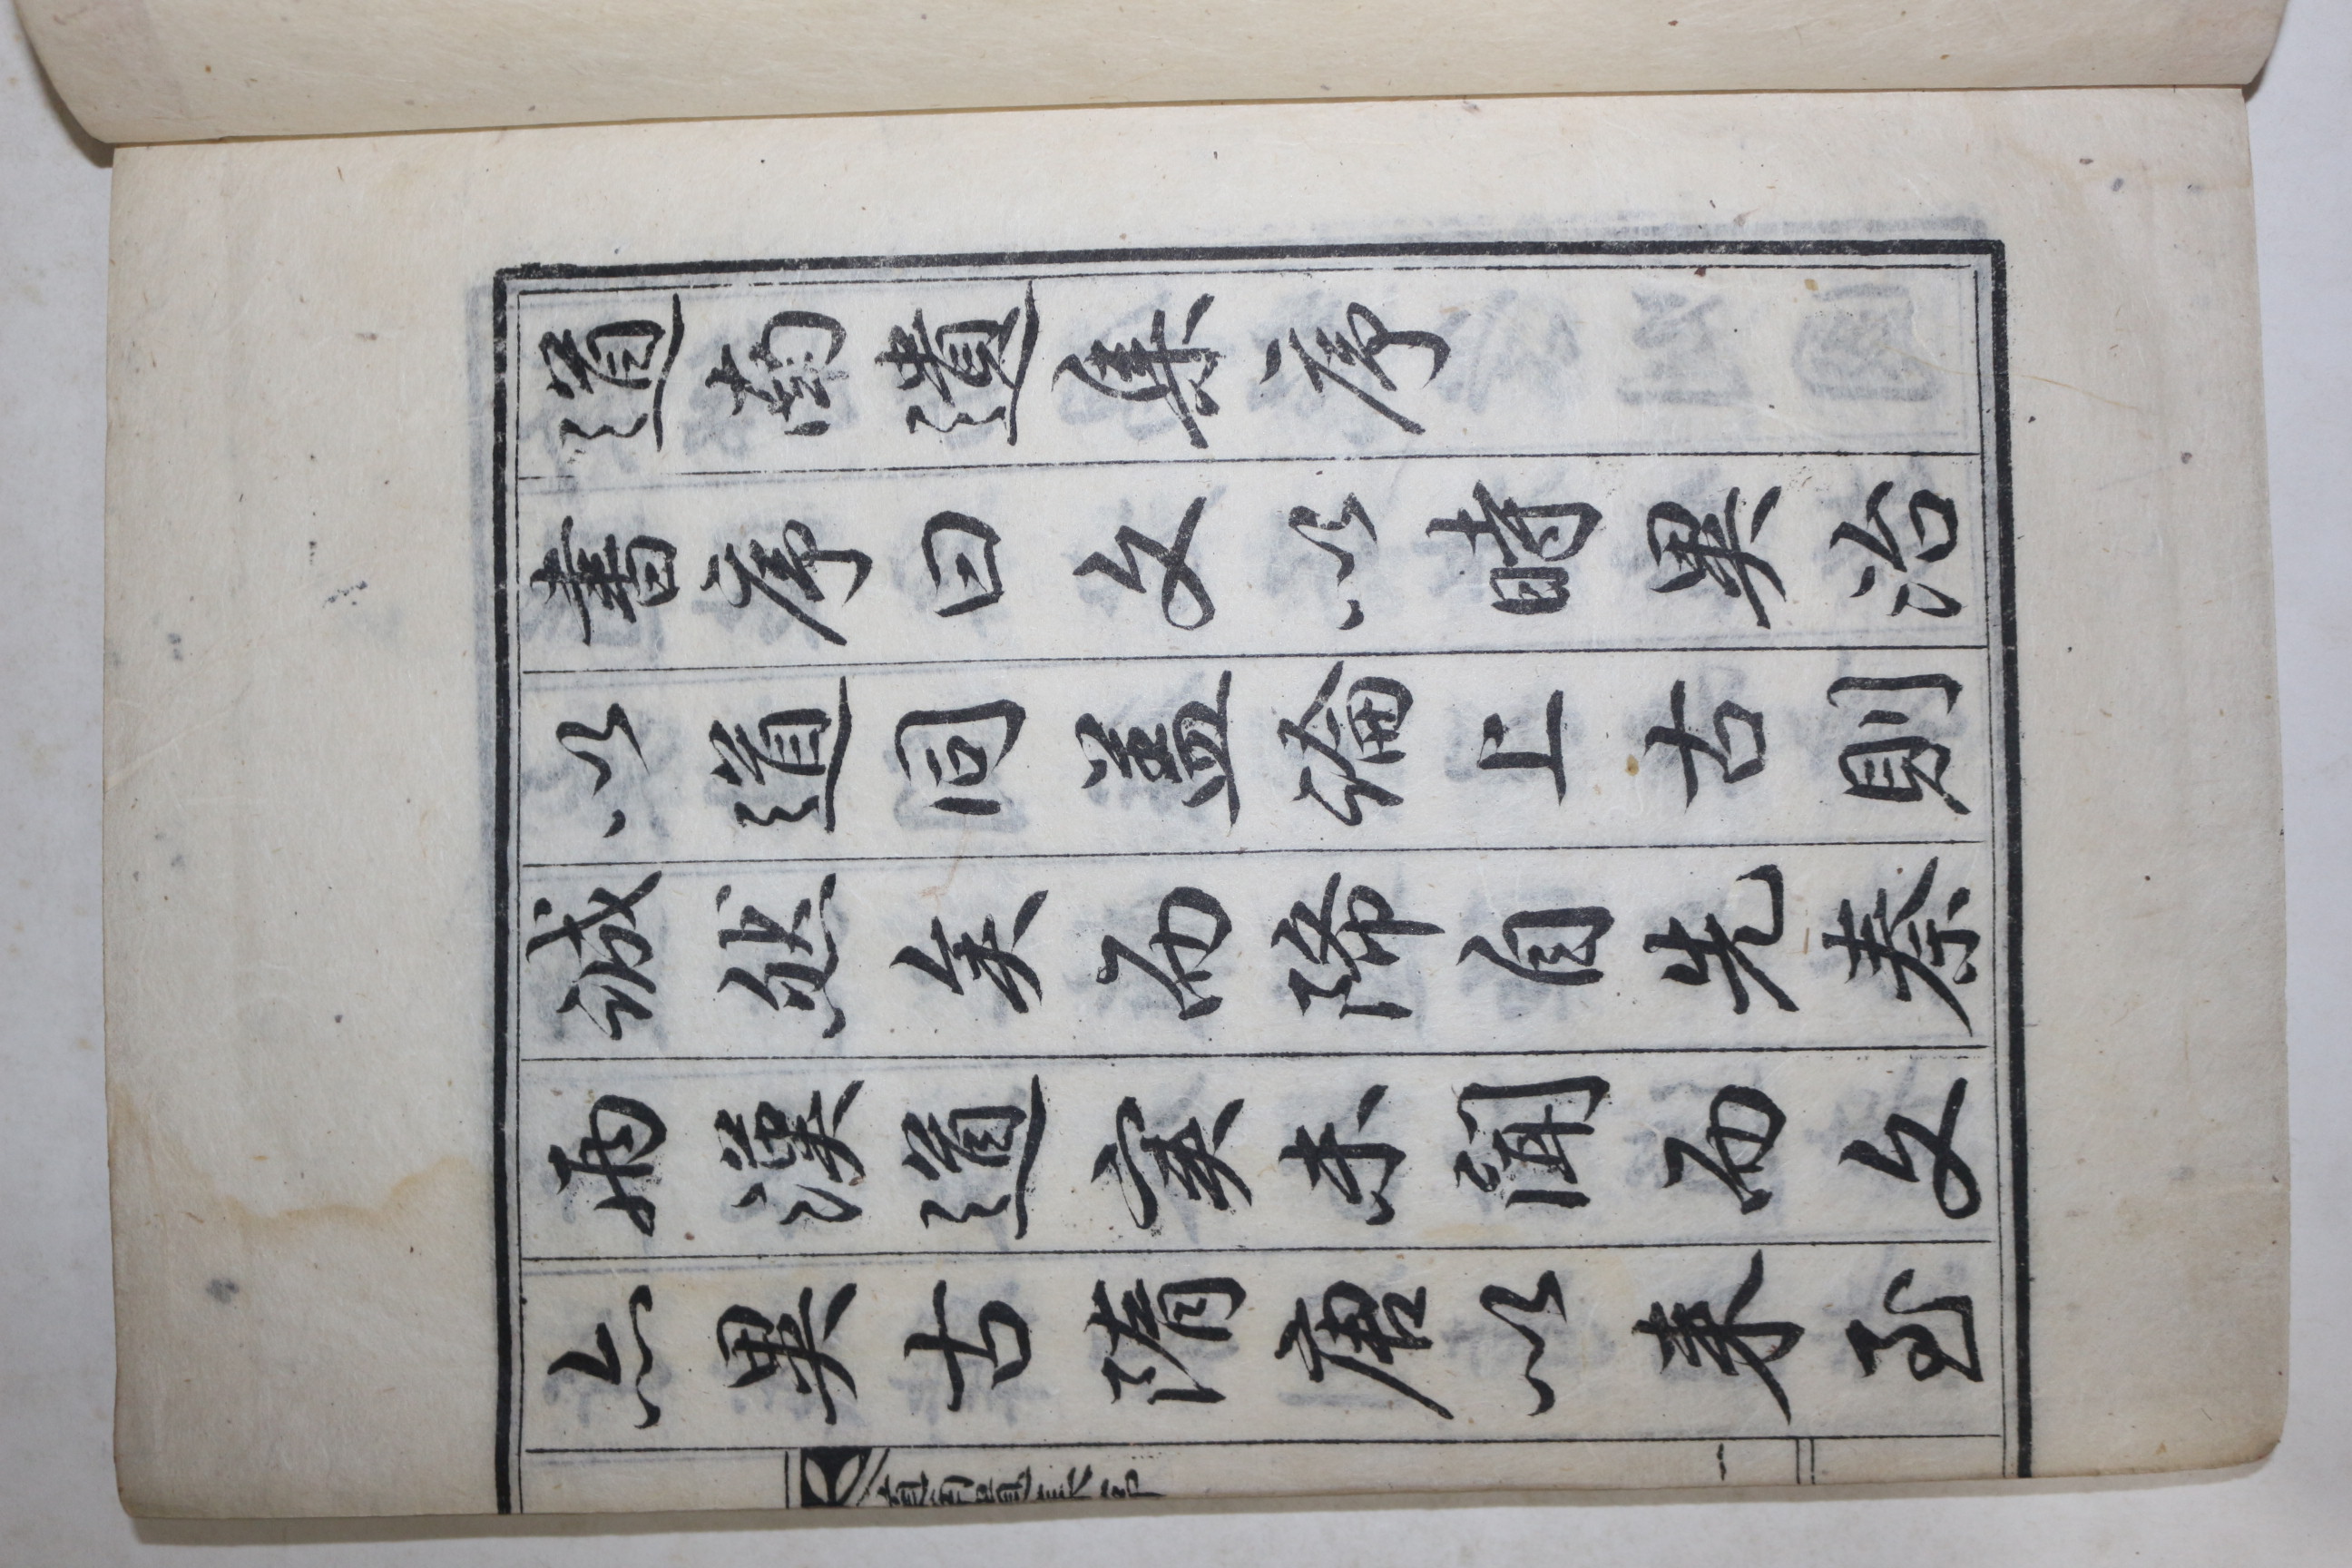 道南遺集序
書序曰文以時異治
以道同盖論上古則
誠然矣而降自先秦
兩漢道實未聞而文
亦異古隋唐以来至
一